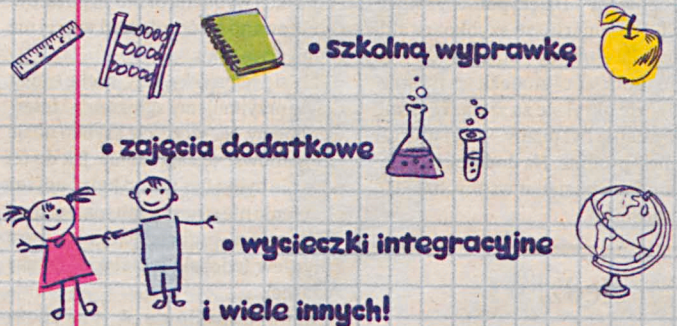 • szkolną wyprawkę
• zajęcia dodatkowe
• wycieczki integracyjne
i wiele innych!